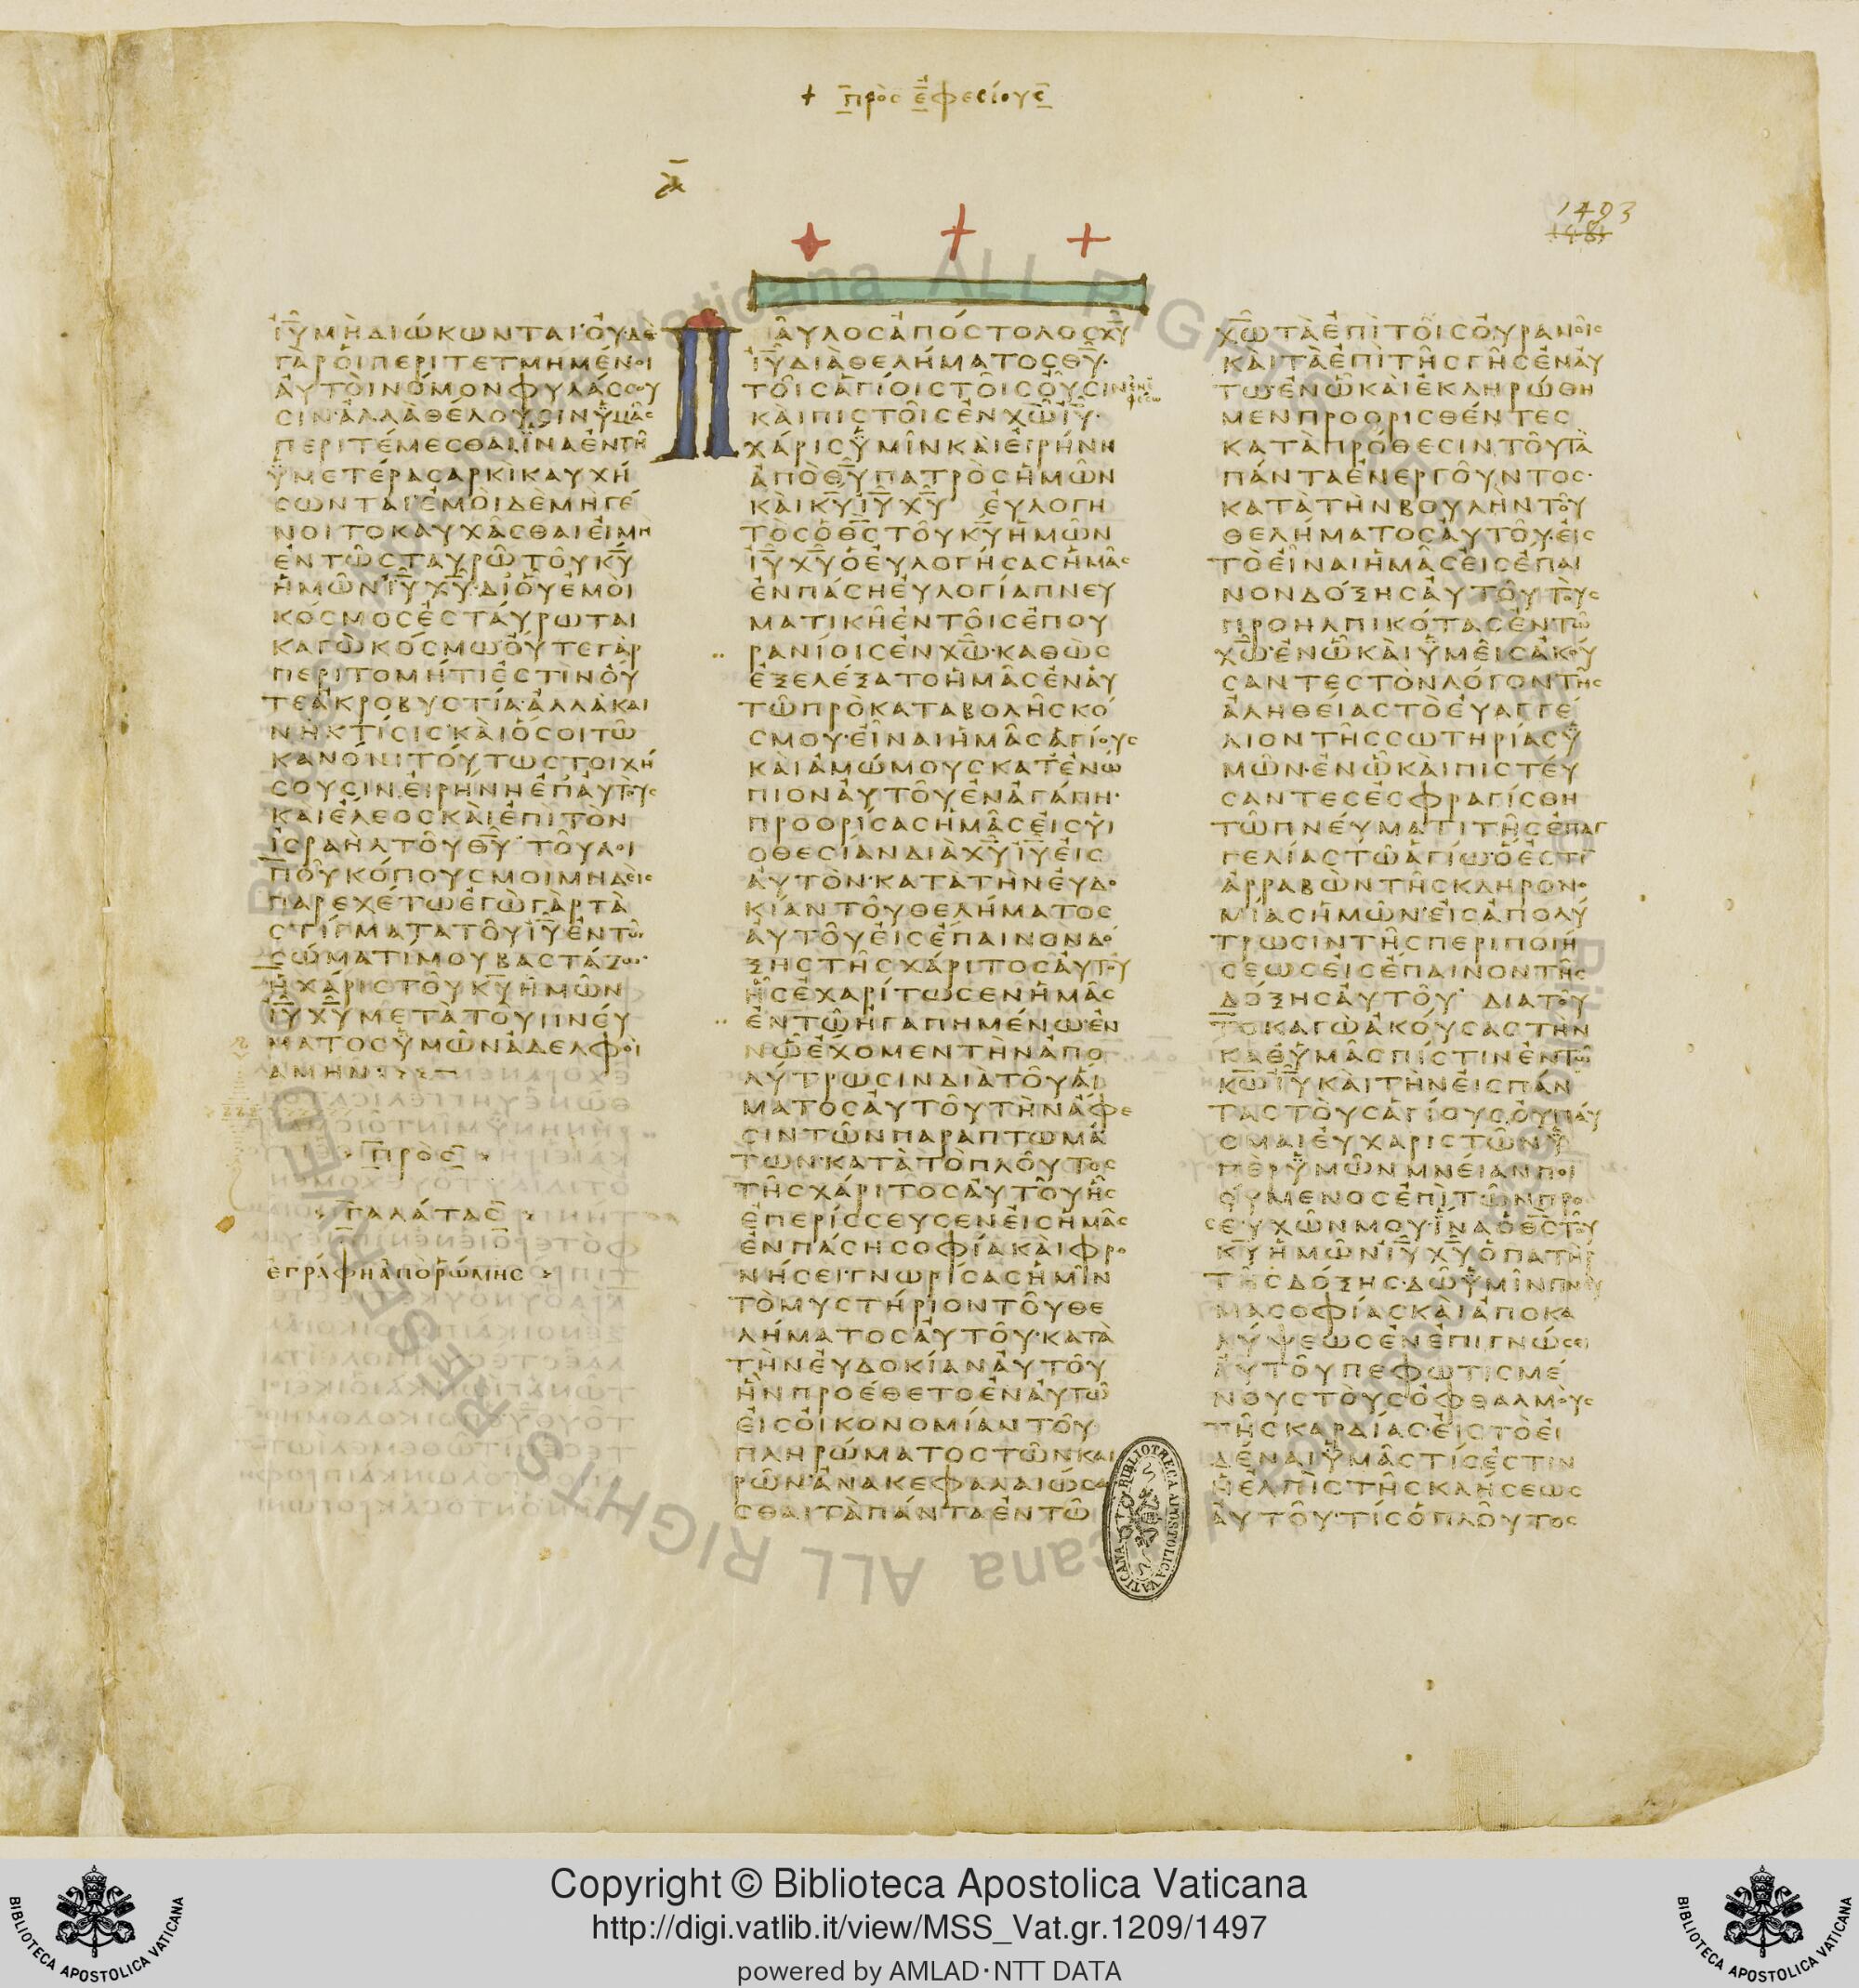 + πρὸς ἐφεσίους
ᾱ
1493
ΙΥ ΜΗ ΔΙΩΚΩΝΤΑΙ ΟΥΔΕ
ΓΑΡ ΟΙ ΠΕΡΙΤΕΤΜΗΜΕΝΟΙ
ΑΥΤΟΙ ΝΟΜΟΝ ΦΥΛΑΣΣΟΥ
ΣΙΝ ΑΛΛΑ ΘΕΛΟΥΣΙΝ ΥΜΑΣ
ΠΕΡΙΤΕΜΕΣΘΑΙ ΙΝΑ ΕΝ ΤΗ
ΥΜΕΤΕΡΑ ΣΑΡΚΙ ΚΑΥΧΗ
ΣΩΝΤΑΙ ΕΜΟΙ ΔΕ ΜΗ ΓΕ
ΝΟΙΤΟ ΚΑΥΧΑΣΘΑΙ ΕΙ ΜΗ
ΕΝ ΤΩ ΣΤΑΥΡΩ ΤΟΥ ΚΥ
ΗΜΩΝ ΙΥ ΧΥ ΔΙ ΟΥ ΕΜΟΙ
ΚΟΣΜΟΣ ΕΣΤΑΥΡΩΤΑΙ
ΚΑΓΩ ΚΟΣΜΩ ΟΥΤΕ ΓΑΡ
ΠΕΡΙΤΟΜΗ ΤΙ ΕΣΤΙΝ ΟΥ
ΤΕ ΑΚΡΟΒΥΣΤΙΑ ΑΛΛΑ ΚΑΙ
ΝΗ ΚΤΙΣΙΣ ΚΑΙ ΟΣΟΙ ΤΩ
ΚΑΝΟΝΙ ΤΟΥΤΩ ΣΤΟΙΧΗ
ΣΟΥΣΙΝ ΕΙΡΗΝΗ ΕΠ ΑΥΤΟΥΣ
ΚΑΙ ΕΛΕΟΣ ΚΑΙ ΕΠΙ ΤΟΝ
ΙΣΡΑΗΛ ΤΟΥ ΘΥ ΤΟΥ ΛΟΙ
ΠΟΥ ΚΟΠΟΥΣ ΜΟΙ ΜΗΔΕΙΣ
ΠΑΡΕΧΕΤΩ ΕΓΩ ΓΑΡ ΤΑ
ΣΤΙΓΜΑΤΑ ΤΟΥ ΙΥ ΕΝ ΤΩ
ΣΩΜΑΤΙ ΜΟΥ ΒΑΣΤΑΖΩ
Η ΧΑΡΙΣ ΤΟΥ ΚΥ ΗΜΩΝ
ΙΥ ΧΥ ΜΕΤΑ ΤΟΥ ΠΝΕΥ
ΜΑΤΟΣ ΥΜΩΝ ΑΔΕΛΦΟΙ
ΑΜΗΝ
ΠΡΟΣ
ΓΑΛΑΤΑΣ
ΕΓΡΑΦΗ ΑΠΟ ΡΩΜΗΣ
ΠΑΥΛΟΣ ΑΠΟΣΤΟΛΟΣ ΧΥ
ΙΥ ΔΙΑ ΘΕΛΗΜΑΤΟΣ ΘΥ
ΤΟΙΣ ΑΓΙΟΙΣ ΤΟΙΣ ΟΥΣΙΝ ἐν ἐφέσω
ΚΑΙ ΠΙΣΤΟΙΣ ΕΝ ΧΩ ΙΥ
ΧΑΡΙΣ ΥΜΙΝ ΚΑΙ ΕΙΡΗΝΗ
ΑΠΟ ΘΥ ΠΑΤΡΟΣ ΗΜΩΝ
ΚΑΙ ΚΥ ΙΥ ΧΥ ΕΥΛΟΓΗ
ΤΟΣ Ο ΘΣ ΤΟΥ ΚΥ ΗΜΩΝ
ΙΥ ΧΥ Ο ΕΥΛΟΓΗΣΑΣ ΗΜΑΣ
ΕΝ ΠΑΣΗ ΕΥΛΟΓΙΑ ΠΝΕΥ
ΜΑΤΙΚΗ ΕΝ ΤΟΙΣ ΕΠΟΥ
ΡΑΝΙΟΙΣ ΕΝ ΧΩ ΚΑΘΩΣ
ΕΞΕΛΕΞΑΤΟ ΗΜΑΣ ΕΝ ΑΥ
ΤΩ ΠΡΟ ΚΑΤΑΒΟΛΗΣ ΚΟ
ΣΜΟΥ ΕΙΝΑΙ ΗΜΑΣ ΑΓΙΟΥΣ
ΚΑΙ ΑΜΩΜΟΥΣ ΚΑΤΕΝΩ
ΠΙΟΝ ΑΥΤΟΥ ΕΝ ΑΓΑΠΗ
ΠΡΟΟΡΙΣΑΣ ΗΜΑΣ ΕΙΣ ΥΙ
ΟΘΕΣΙΑΝ ΔΙΑ ΧΥ ΙΥ ΕΙΣ
ΑΥΤΟΝ ΚΑΤΑ ΤΗΝ ΕΥΔΟ
ΚΙΑΝ ΤΟΥ ΘΕΛΗΜΑΤΟΣ
ΑΥΤΟΥ ΕΙΣ ΕΠΑΙΝΟΝ ΔΟ
ΞΗΣ ΤΗΣ ΧΑΡΙΤΟΣ ΑΥΤΟΥ
ΗΣ ΕΧΑΡΙΤΩΣΕΝ ΗΜΑΣ
ΕΝ ΤΩ ΗΓΑΠΗΜΕΝΩ ΕΝ
Ω ΕΧΟΜΕΝ ΤΗΝ ΑΠΟ
ΛΥΤΡΩΣΙΝ ΔΙΑ ΤΟΥ ΑΙ
ΜΑΤΟΣ ΑΥΤΟΥ ΤΗΝ ΑΦΕ
ΣΙΝ ΤΩΝ ΠΑΡΑΠΤΩΜΑ
ΤΩΝ ΚΑΤΑ ΤΟ ΠΛΟΥΤΟΣ
ΤΗΣ ΧΑΡΙΤΟΣ ΑΥΤΟΥ ΗΣ
ΕΠΕΡΙΣΣΕΥΣΕΝ ΕΙΣ ΗΜΑΣ
ΕΝ ΠΑΣΗ ΣΟΦΙΑ ΚΑΙ ΦΡΟ
ΝΗΣΕΙ ΓΝΩΡΙΣΑΣ ΗΜΙΝ
ΤΟ ΜΥΣΤΗΡΙΟΝ ΤΟΥ ΘΕ
ΛΗΜΑΤΟΣ ΑΥΤΟΥ ΚΑΤΑ
ΤΗΝ ΕΥΔΟΚΙΑΝ ΑΥΤΟΥ
ΗΝ ΠΡΟΕΘΕΤΟ ΕΝ ΑΥΤΩ
ΕΙΣ ΟΙΚΟΝΟΜΙΑΝ ΤΟΥ
ΠΛΗΡΩΜΑΤΟΣ ΤΩΝ ΚΑΙ
ΡΩΝ ΑΝΑΚΕΦΑΛΑΙΩΣΑ
ΣΘΑΙ ΤΑ ΠΑΝΤΑ ΕΝ ΤΩ
ΧΩ ΤΑ ΕΠΙ ΤΟΙΣ ΟΥΡΑΝΟΙΣ
ΚΑΙ ΤΑ ΕΠΙ ΤΗΣ ΓΗΣ ΕΝ ΑΥ
ΤΩ ΕΝ Ω ΚΑΙ ΕΚΛΗΡΩΘΗ
ΜΕΝ ΠΡΟΟΡΙΣΘΕΝΤΕΣ
ΚΑΤΑ ΠΡΟΘΕΣΙΝ ΤΟΥ ΤΑ
ΠΑΝΤΑ ΕΝΕΡΓΟΥΝΤΟΣ
ΚΑΤΑ ΤΗΝ ΒΟΥΛΗΝ ΤΟΥ
ΘΕΛΗΜΑΤΟΣ ΑΥΤΟΥ ΕΙΣ
ΤΟ ΕΙΝΑΙ ΗΜΑΣ ΕΙΣ ΕΠΑΙ
ΝΟΝ ΔΟΞΗΣ ΑΥΤΟΥ ΤΟΥΣ
ΠΡΟΗΛΠΙΚΟΤΑΣ ΕΝ ΤΩ
ΧΩ ΕΝ Ω ΚΑΙ ΥΜΕΙΣ ΑΚΟΥ
ΣΑΝΤΕΣ ΤΟΝ ΛΟΓΟΝ ΤΗΣ
ΑΛΗΘΕΙΑΣ ΤΟ ΕΥΑΓΓΕ
ΛΙΟΝ ΤΗΣ ΣΩΤΗΡΙΑΣ Υ
ΜΩΝ ΕΝ Ω ΚΑΙ ΠΙΣΤΕΥ
ΣΑΝΤΕΣ ΕΣΦΡΑΓΙΣΘΗ
ΤΩ ΠΝΕΥΜΑΤΙ ΤΗΣ ΕΠΑΓ
ΓΕΛΙΑΣ ΤΩ ΑΓΙΩ Ο ΕΣΤΙ
ΑΡΡΑΒΩΝ ΤΗΣ ΚΛΗΡΟΝΟ
ΜΙΑΣ ΗΜΩΝ ΕΙΣ ΑΠΟΛΥ
ΤΡΩΣΙΝ ΤΗΣ ΠΕΡΙΠΟΙΗ
ΣΕΩΣ ΕΙΣ ΕΠΑΙΝΟΝ ΤΗΣ
ΔΟΞΗΣ ΑΥΤΟΥ ΔΙΑ ΤΟΥ
ΤΟ ΚΑΓΩ ΑΚΟΥΣΑΣ ΤΗΝ
ΚΑΘ ΥΜΑΣ ΠΙΣΤΙΝ ΕΝ ΤΩ
ΚΩ ΙΥ ΚΑΙ ΤΗΝ ΕΙΣ ΠΑΝ
ΤΑΣ ΤΟΥΣ ΑΓΙΟΥΣ ΟΥ ΠΑΥ
ΟΜΑΙ ΕΥΧΑΡΙΣΤΩΝ Υ
ΠΕΡ ΥΜΩΝ ΜΝΕΙΑΝ ΠΟΙ
ΟΥΜΕΝΟΣ ΕΠΙ ΤΩΝ ΠΡΟ
ΣΕΥΧΩΝ ΜΟΥ ΙΝΑ Ο ΘΣ ΤΟΥ
ΚΥ ΗΜΩΝ ΙΥ ΧΥ Ο ΠΑΤΗΡ
ΤΗΣ ΔΟΞΗΣ ΔΩ ΥΜΙΝ ΠΝΕΥ
ΜΑ ΣΟΦΙΑΣ ΚΑΙ ΑΠΟΚΑ
ΛΥΨΕΩΣ ΕΝ ΕΠΙΓΝΩΣΕΙ
ΑΥΤΟΥ ΠΕΦΩΤΙΣΜΕ
ΝΟΥΣ ΤΟΥΣ ΟΦΘΑΛΜΟΥΣ
ΤΗΣ ΚΑΡΔΙΑΣ ΕΙΣ ΤΟ ΕΙ
ΔΕΝΑΙ ΥΜΑΣ ΤΙΣ ΕΣΤΙΝ
Η ΕΛΠΙΣ ΤΗΣ ΚΛΗΣΕΩΣ
ΑΥΤΟΥ ΤΙΣ Ο ΠΛΟΥΤΟΣ
BIBLIOTECA APOSTOLICA VATICANA
Copyright © Biblioteca Apostolica Vaticana
http://digi.vatlib.it/view/MSS_Vat.gr.1209/1497
powered by AMLAD·NTT DATA
BIBLIOTECA APOSTOLICA VATICANA
BIBLIOTECA APOSTOLICA VATICANA